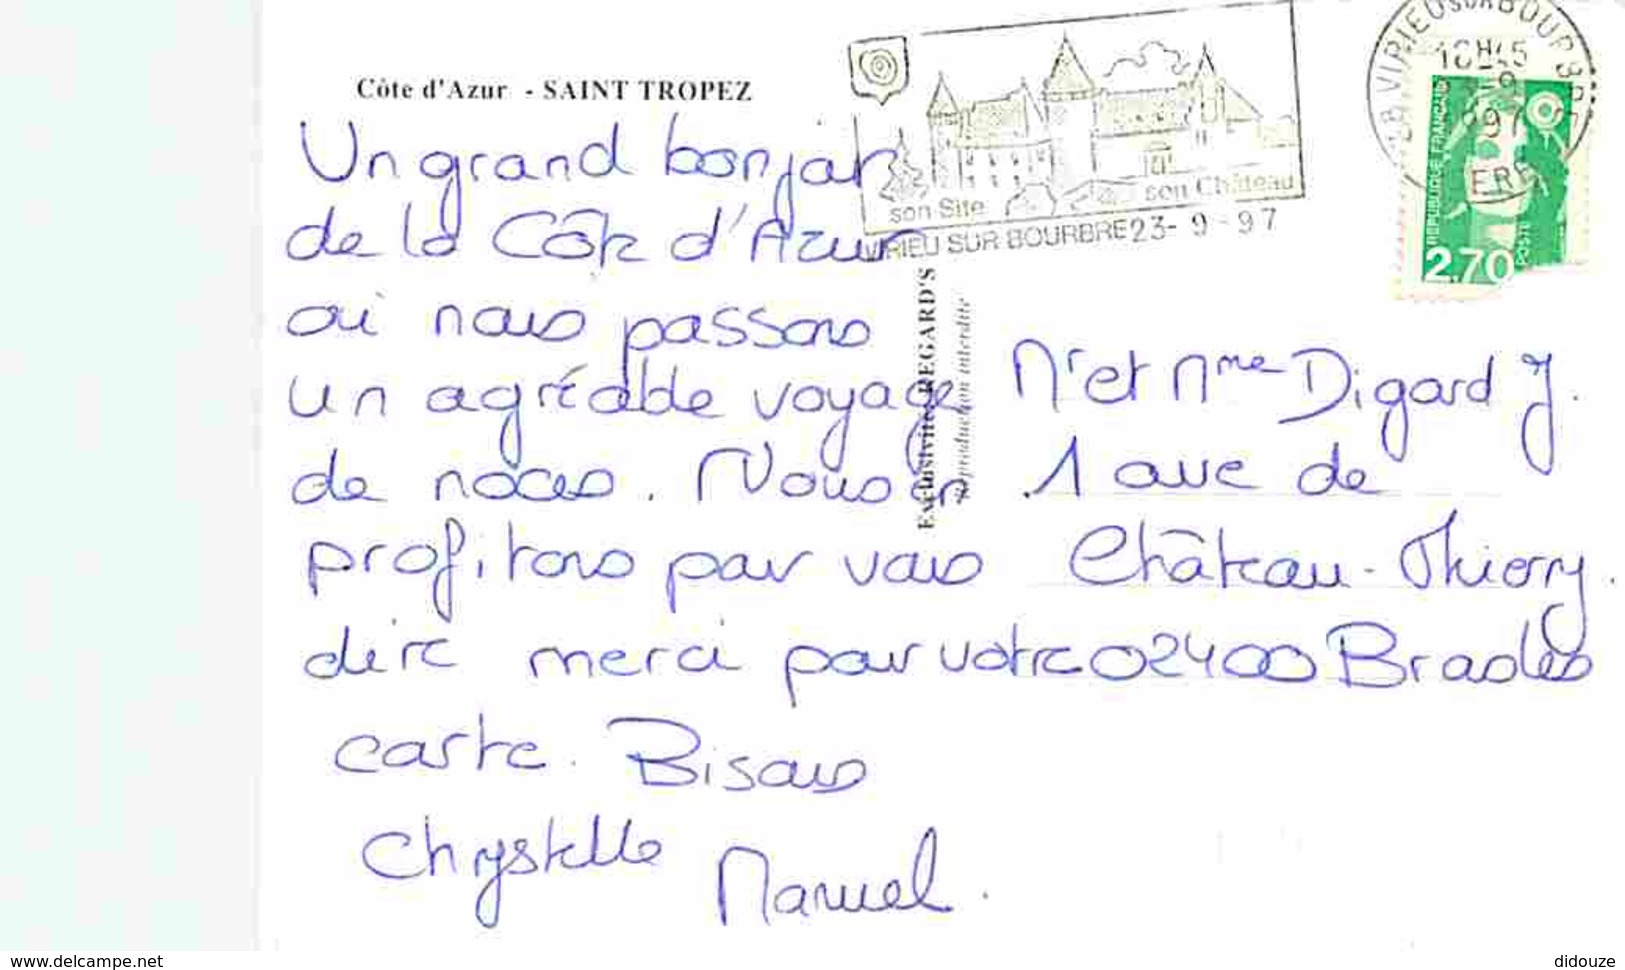 Côte d'Azur - SAINT TROPEZ
Un grand bonjour
de la Côte d'Azur
où nous passons
un agréable voyage
de noces. Nous en
profitons pour vous
dire merci pour votre
carte. Bisous
Chrystelle
Manuel.
Exclusivité REGARD'S
Reproduction interdite
son Site
son Château
VIRIEU SUR BOURBRE 23-9-97
38 VIRIEU SUR BOURBRE
ISERE
REPUBLIQUE FRANÇAISE
2,70
POSTE
Mr et Mme Digard J.
1 ave de
Château-Thierry.
02400 Brasles
www.delcampe.net
didouze